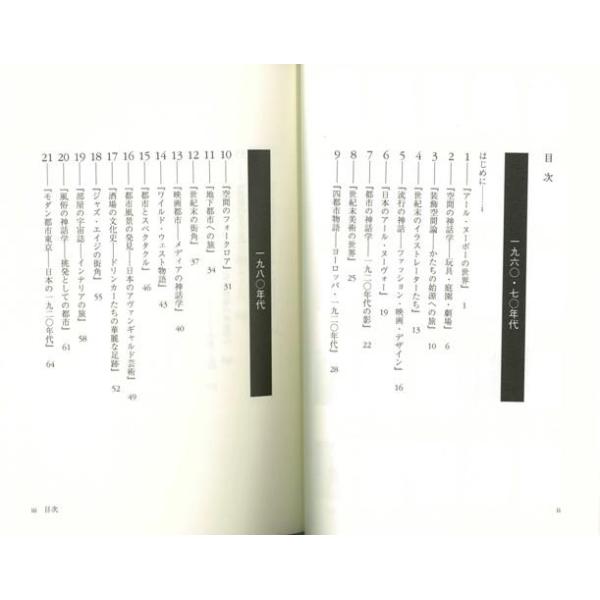 目次
はじめに i
一九六〇・七〇年代
1 『アール・ヌーボーの世界』 1
2 『空間の神話学——玩具・庭園・劇場』 6
3 『装飾空間論——かたちの始源への旅』 10
4 『世紀末のイラストレーターたち』 13
5 『流行の神話学——ファッション・映画・デザイン』 16
6 『日本のアール・ヌーヴォー』 19
7 『都市の神話学——一九二〇年代の影』 22
8 『世紀末美術の世界』 25
9 『四都市物語——ヨーロッパ・一九二〇年代』 28
ii
一九八〇年代
10 『空間のフォークロア』 31
11 『地下都市への旅』 34
12 『世紀末の街角』 37
13 『映画都市——メディアの神話学』 40
14 『ワイルド・ウェスト物語』 43
15 『都市とスペクタクル』 46
16 『都市風景の発見——日本のアヴァンギャルド芸術』 49
17 『酒場の文化史——ドリンカーたちの華麗な足跡』 52
18 『ジャズ・エイジの街角』 55
19 『部屋の宇宙誌——インテリアの旅』 58
20 『風俗の神話学——挑発としての都市』 61
21 『モダン都市東京——日本の一九二〇年代』 64
iii 目次